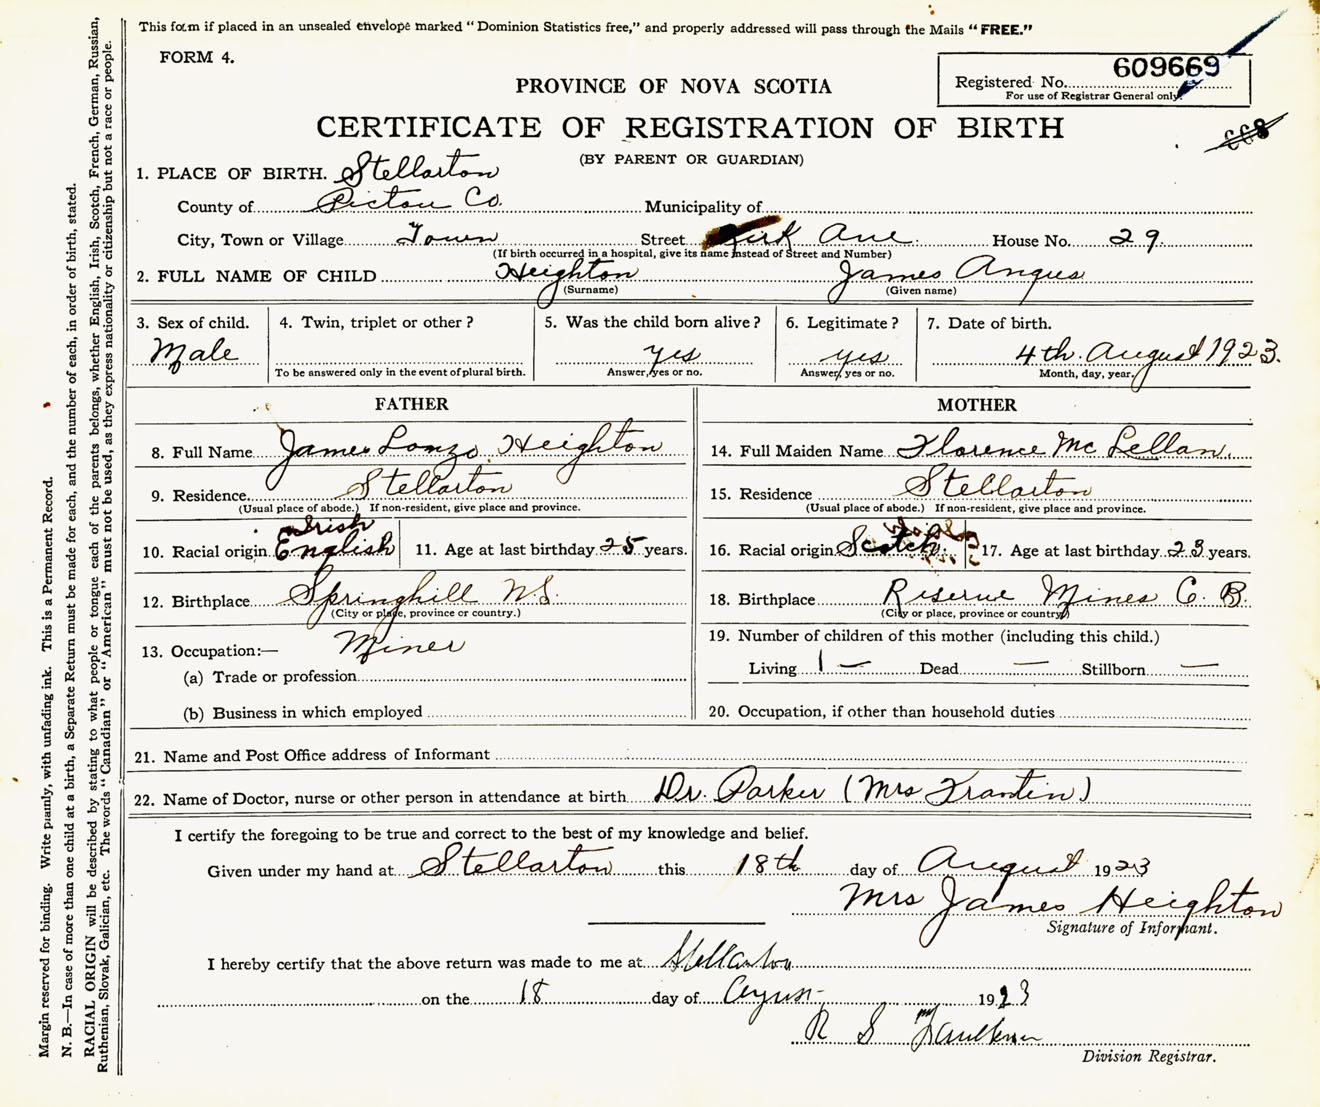 This form if placed in an unsealed envelope marked "Dominion Statistics free," and properly addressed will pass through the Mails "FREE."
FORM 4.
609669
Registered No.
For use of Registrar General only.
PROVINCE OF NOVA SCOTIA
CERTIFICATE OF REGISTRATION OF BIRTH
668
(BY PARENT OR GUARDIAN)
1. PLACE OF BIRTH. Stellarton
County of Pictou Co. Municipality of
City, Town or Village Town Street Kirk Ave. House No. 29.
(If birth occurred in a hospital, give its name instead of Street and Number)
2. FULL NAME OF CHILD Heighton James Angus
(Surname) (Given name)
3. Sex of child. 4. Twin, triplet or other? 5. Was the child born alive? 6. Legitimate? 7. Date of birth.
Male yes yes 4th. August 1923.
To be answered only in the event of plural birth. Answer, yes or no. Answer, yes or no. Month, day, year.
FATHER MOTHER
8. Full Name James Lonzo Heighton 14. Full Maiden Name Florence McLellan.
9. Residence Stellarton 15. Residence Stellarton
(Usual place of abode.) If non-resident, give place and province. (Usual place of abode.) If non-resident, give place and province.
Irish
10. Racial origin English 11. Age at last birthday 25 years. 16. Racial origin Scotch. 17. Age at last birthday 23 years.
12. Birthplace Springhill N.S. 18. Birthplace Reserve Mines C. B.
(City or place, province or country.) (City or place, province or country)
13. Occupation:— Miner 19. Number of children of this mother (including this child.)
(a) Trade or profession Living 1 — Dead — Stillborn —
(b) Business in which employed 20. Occupation, if other than household duties
21. Name and Post Office address of Informant
22. Name of Doctor, nurse or other person in attendance at birth Dr. Parker (Mrs )
I certify the foregoing to be true and correct to the best of my knowledge and belief.
Given under my hand at Stellarton this 18th day of August 1923
Mrs James Heighton
Signature of Informant.
I hereby certify that the above return was made to me at Stellarton
on the 18 day of August 1923
R S Faulkner
Division Registrar.
Margin reserved for binding. Write plainly, with unfading ink. This is a Permanent Record.
N. B.—In case of more than one child at a birth, a Separate Return must be made for each, and the number of each, in order of birth, stated.
RACIAL ORIGIN will be described by stating to what people or tongue each of the parents belongs, whether English, Irish, Scotch, French, German, Russian,
Ruthenian, Slovak, Galician, etc. The words "Canadian" or "American" must not be used, as they express nationality or citizenship but not a race or people.